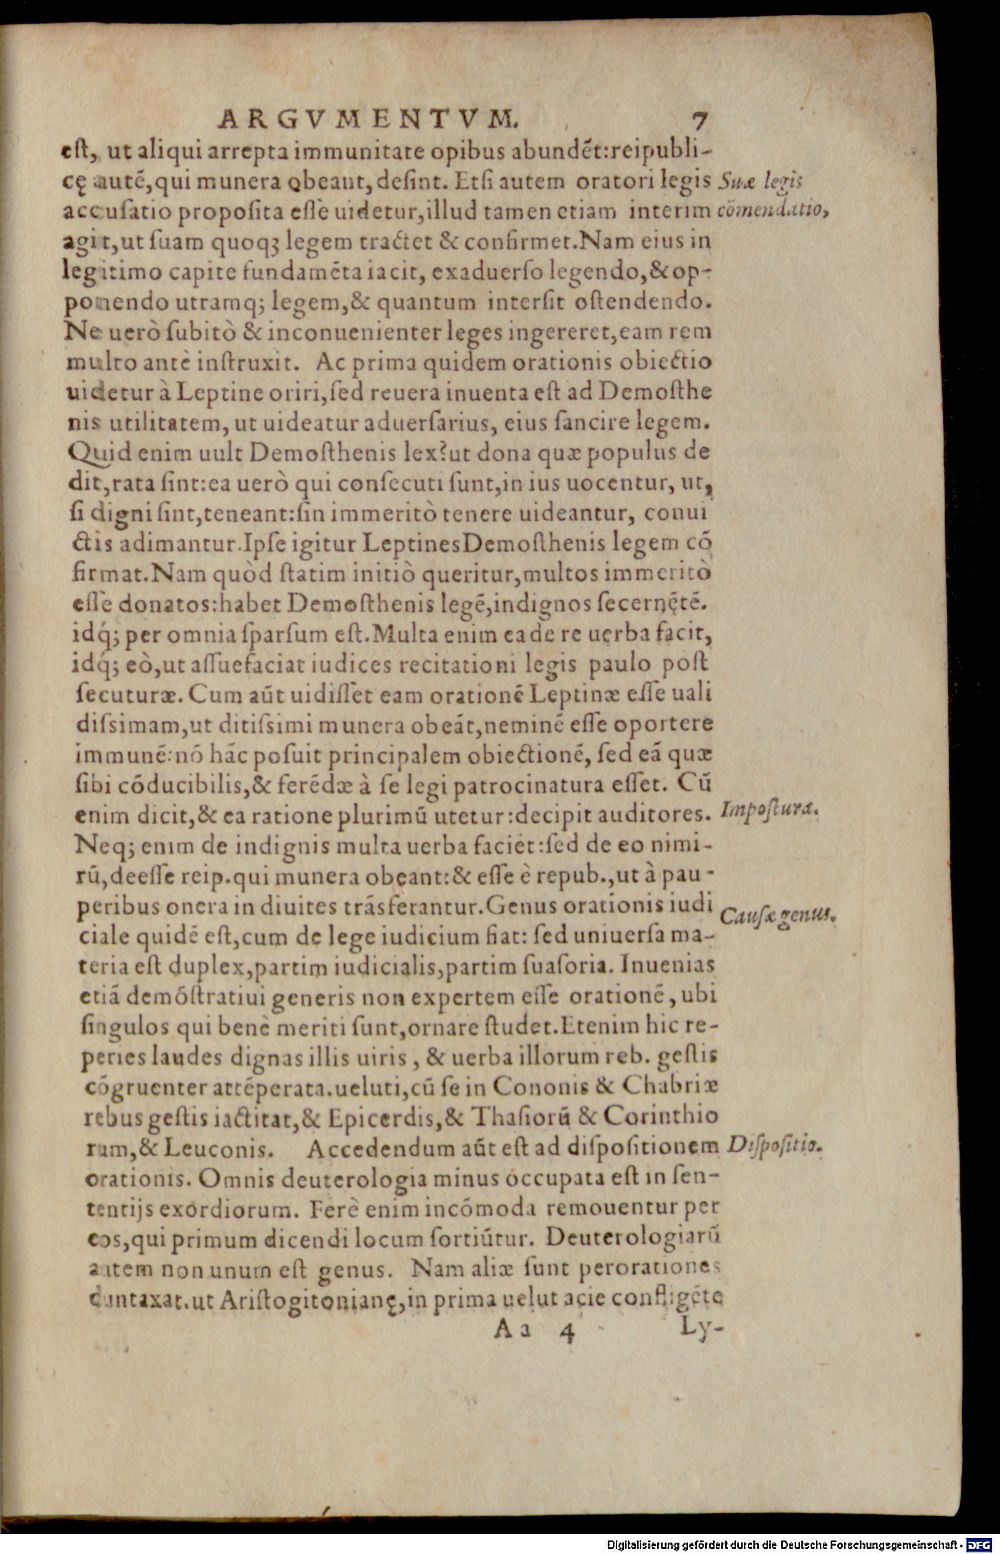 ARGVMENTVM. 7
est, ut aliqui arrepta immunitate opibus abundēt:reipubli-
cę autē,qui munera obeant,desint. Etsi autem oratori legis Suæ legis
accusatio proposita esse uidetur,illud tamen etiam interim cōmendatio,
agit,ut suam quoq; legem tractet & confirmet.Nam eius in
legitimo capite fundamēta iacit, exaduerso legendo,&op-
ponendo utramq; legem,& quantum intersit ostendendo.
Ne uerò subitò & inconuenienter leges ingereret,eam rem
multo antè instruxit. Ac prima quidem orationis obiectio
uidetur à Leptine oriri,sed reuera inuenta est ad Demosthe
nis utilitatem, ut uideatur aduersarius, eius sancire legem.
Quid enim uult Demosthenis lex?ut dona quæ populus de
dit,rata sint:ea uerò qui consecuti sunt,in ius uocentur, ut,
si digni sint,teneant:sin immeritò tenere uideantur, conui
ctis adimantur.Ipse igitur Leptines Demosthenis legem cō
firmat.Nam quòd statim initiò queritur,multos immeritò
esse donatos:habet Demosthenis legē,indignos secernētē.
idq́; per omnia sparsum est.Multa enim ea de re uerba facit,
idq́; eò,ut assuefaciat iudices recitationi legis paulo post
secuturæ. Cum aūt uidisset eam orationē Leptinæ esse uali
dissimam,ut ditissimi munera obeāt,neminē esse oportere
immunē:nō hāc posuit principalem obiectionē, sed eā quæ
sibi cōducibilis,& ferēdæ à se legi patrocinatura esset. Cū
enim dicit,& ea ratione plurimū utetur:decipit auditores. Imposturæ.
Neq; enim de indignis multa uerba faciet:sed de eo nimi-
rū,deesse reip.qui munera obeant:& esse è repub.,ut à pau-
peribus onera in diuites trāsferantur.Genus orationis iudi Causæ genus.
ciale quidē est,cum de lege iudicium fiat: sed uniuersa ma-
teria est duplex,partim iudicialis,partim suasoria. Inuenias
etiā demōstratiui generis non expertem esse orationē, ubi
singulos qui benè meriti sunt,ornare studet.Etenim hic re-
peries laudes dignas illis uiris, & uerba illorum reb. gestis
cōgruenter attēperata.ueluti,cū se in Cononis & Chabriæ
rebus gestis iactitat,& Epicerdis,& Thasiorū & Corinthio
rum,& Leuconis. Accedendum aūt est ad dispositionem Dispositio.
orationis. Omnis deuterologia minus occupata est in sen-
tentijs exordiorum. Ferè enim incōmoda remouentur per
eos,qui primum dicendi locum sortiūtur. Deuterologiarū
autem non unum est genus. Nam aliæ sunt perorationes
duntaxat.ut Aristogitonianę,in prima uelut acie confligēte
Aa 4 Ly-
Digitalisierung gefördert durch die Deutsche Forschungsgemeinschaft - DFG